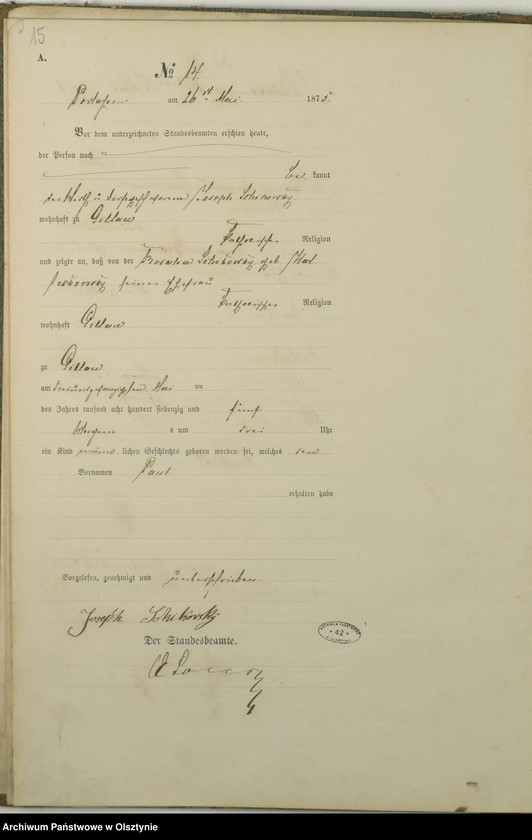 15
A.
No 14.
am 26 Mai 1875.
Vor dem unterzeichneten Standesbeamten erschien heute,
der Person nach
be kannt
Joseph
wohnhaft zu Gillau
katholischer Religion
und zeigte an, daß von der geb.
seiner Ehefrau
katholischer Religion
wohnhaft Gillau
zu Gillau
am dreiundzwanzigsten Mai
des Jahres tausend acht hundert siebenzig und fünf
Morgens s um drei Uhr
ein Kind männ lichen Geschlechts geboren worden sei, welches den
Vornamen Paul
erhalten habe
Vorgelesen, genehmigt und unterschrieben.
Joseph
Der Standesbeamte.
42
Archiwum Państwowe w Olsztynie